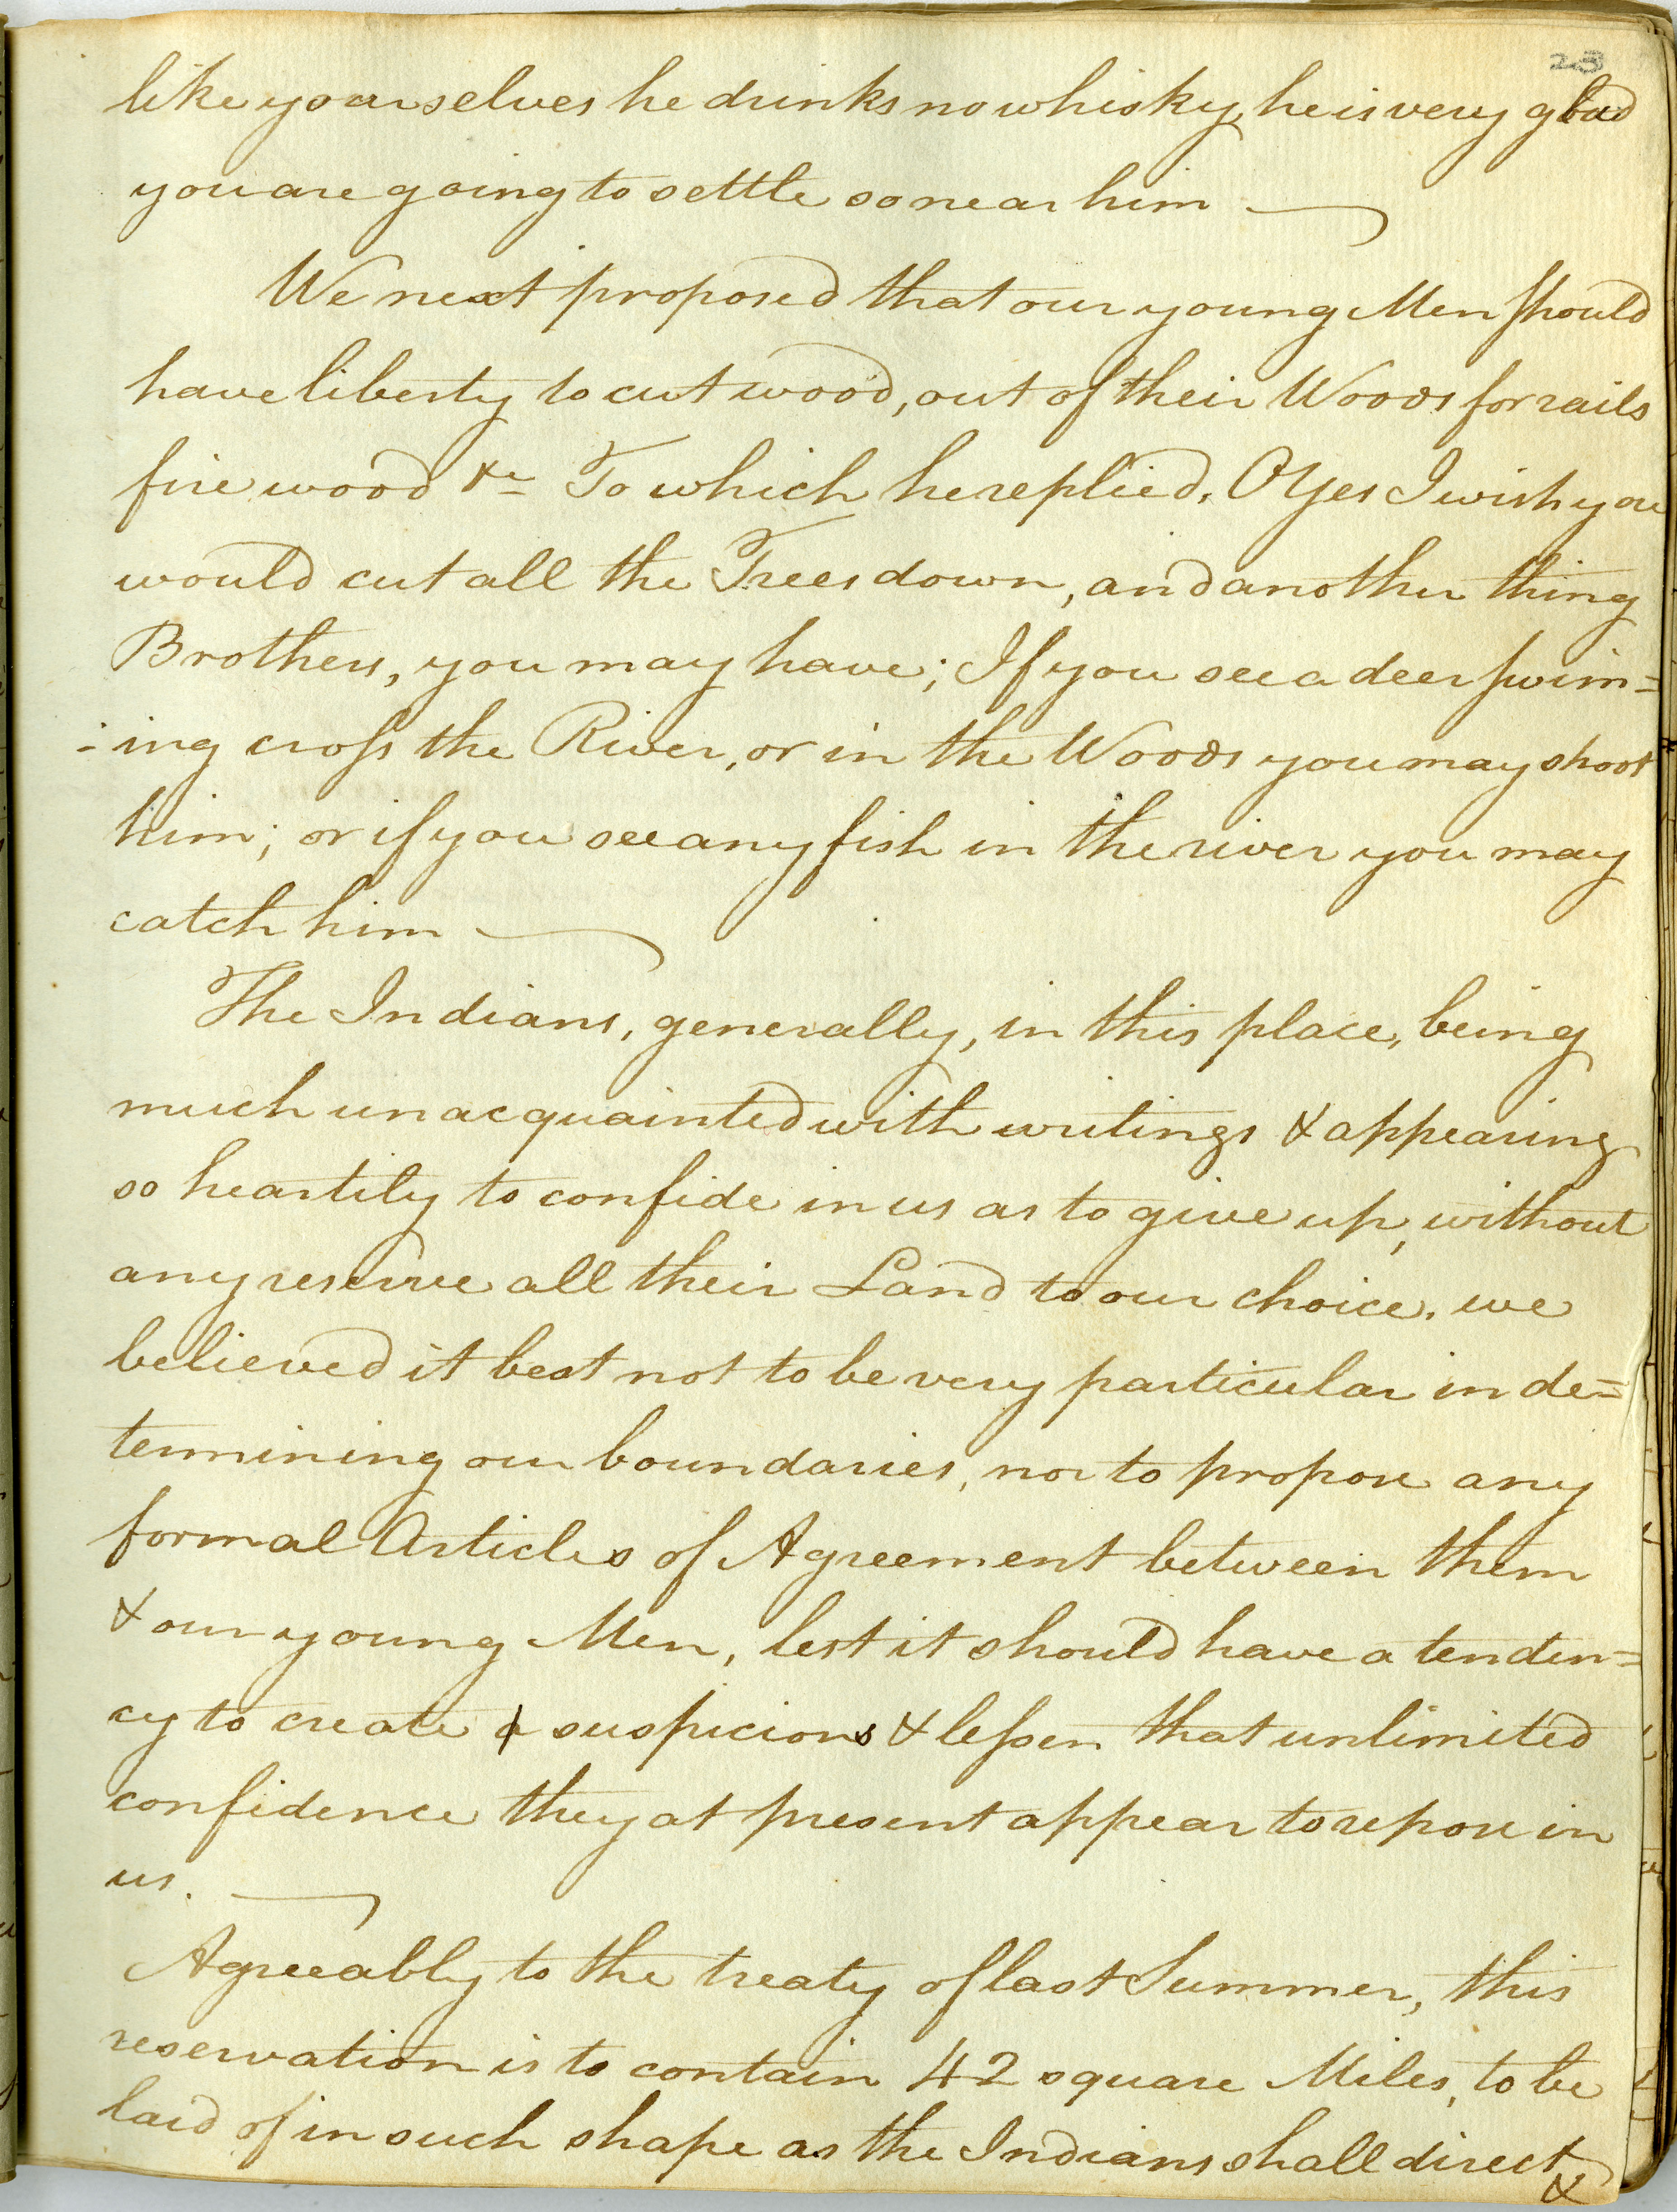 23
like yourselves he drinks no whisky, he is very glad
you are going to settle so near him —
We next proposed that our young Men should
have liberty to cut wood, out of their Woods for rails
fire wood &c To which he replied, O Yes I wish you
would cut all the Trees down, and another thing
Brothers, you may have; If you see a deer swim=
=ing cross the River, or in the Woods you may shoot
him; or if you see any fish in the river you may
catch him —
The Indians, generally, in this place, being
much unacquainted with writings & appearing
so heartily to confide in us as to give up, without
any reserve all their Land to our choice, we
believed it best not to be very particular in de=
termining our boundaries, nor to propose any
formal Articles of Agreement between them
& our young Men, lest it should have a tenden=
cy to create a suspicions & lessen that unlimited
confidence they at present appear to repose in
us. —
Agreeably to the treaty of last Summer, this
reservation is to contain 42 square Miles, to be
laid of in such shape as the Indians shall direct
&